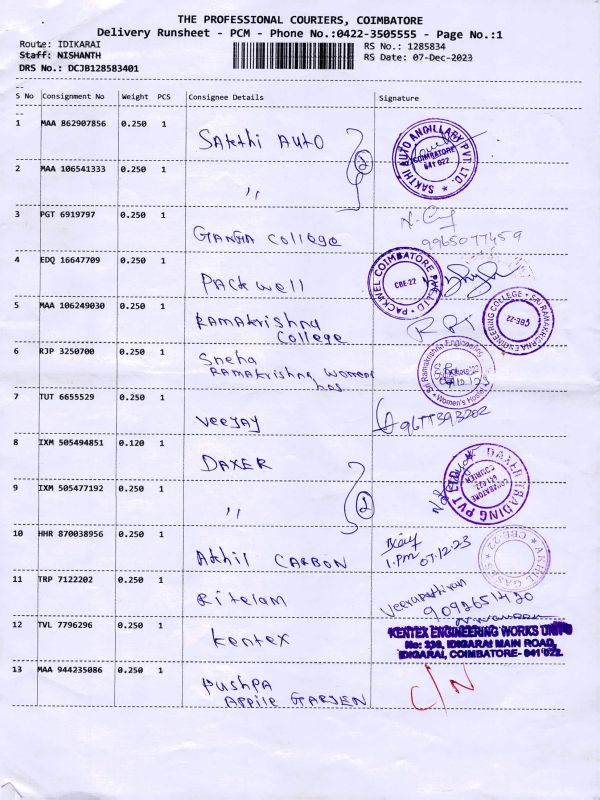 THE PROFESSIONAL COURIERS, COIMBATORE
Delivery Runsheet - PCM - Phone No.:0422-3505555 - Page No.:1
Route: IDIKARAI
RS No.: 1285834
Staff: NISHANTH
RS Date: 07-Dec-2023
DRS No.: DCJB128583401
S No Consignment No Weight PCS Consignee Details Signature
1 MAA 862907856 0.250 1 Sakthi Auto
SAKTHI AUTO ANCILLARY PVT. LTD. COIMBATORE 641 022
2 MAA 106541333 0.250 1 ,, 2
3 PGT 6919797 0.250 1 GANGA College 9965077459
4 EDQ 16647709 0.250 1 Packwell
PACKWEL COIMBATORE PVT LTD CBE-22
5 MAA 106249030 0.250 1 Ramakrishna College
SRI RAMAKRISHNA ENGINEERING COLLEGE CBE-22
6 RJP 3250700 0.250 1 Sneha Ramakrishna Womens hos
Sri Ramakrishna Engineering Women's Hostel
7 TUT 6655529 0.250 1 Veejay 9677393202
8 IXM 505494851 0.120 1 DAXER
DAXER TRADING PVT LTD COIMBATORE 641 022
9 IXM 505477192 0.250 1 ,, 2
10 HHR 870038956 0.250 1 Akhil CARBON 1.Pm 07.12.23
AKHIL GASES CBE-22
11 TRP 7122202 0.250 1 Ritelam Veerapathiran 9092651420
12 TVL 7796296 0.250 1 Kentex
KENTEX ENGINEERING WORKS UNIT
No: 339, IDIGARAI MAIN ROAD,
IDIGARAI, COIMBATORE- 641 022.
13 MAA 944235086 0.250 1 Pushpa C/N